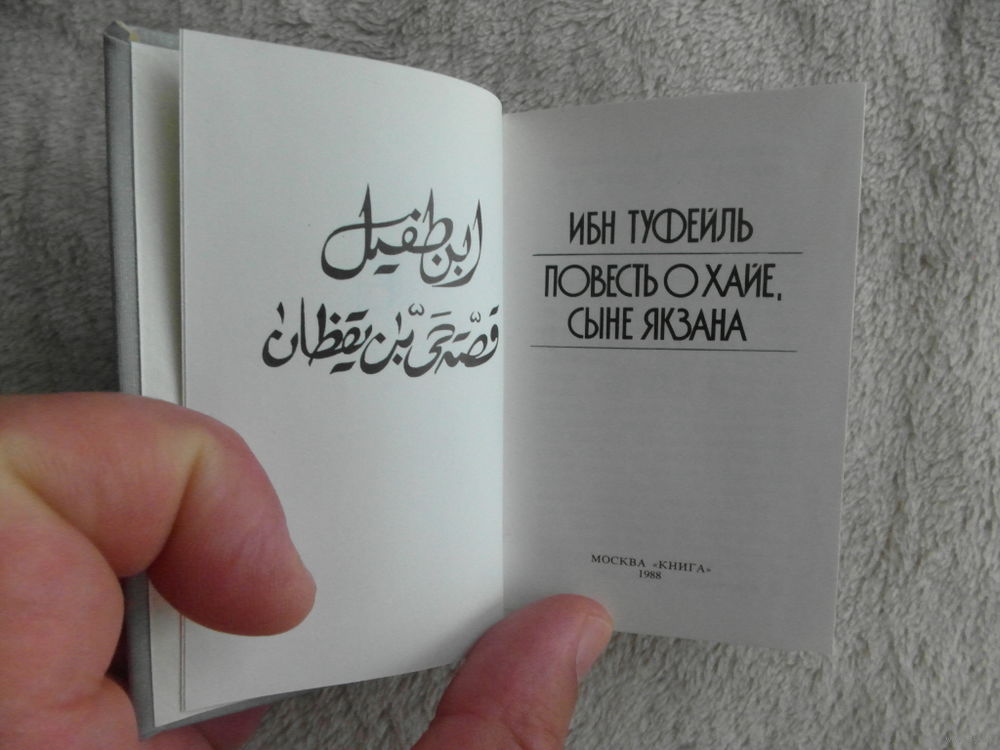 ابن طفيل
قصّة حَيّ بّن يقظان
ИБН ТУФЕЙЛЬ
ПОВЕСТЬ О ХАЙЕ,
СЫНЕ ЯКЗАНА
МОСКВА «КНИГА»
1988